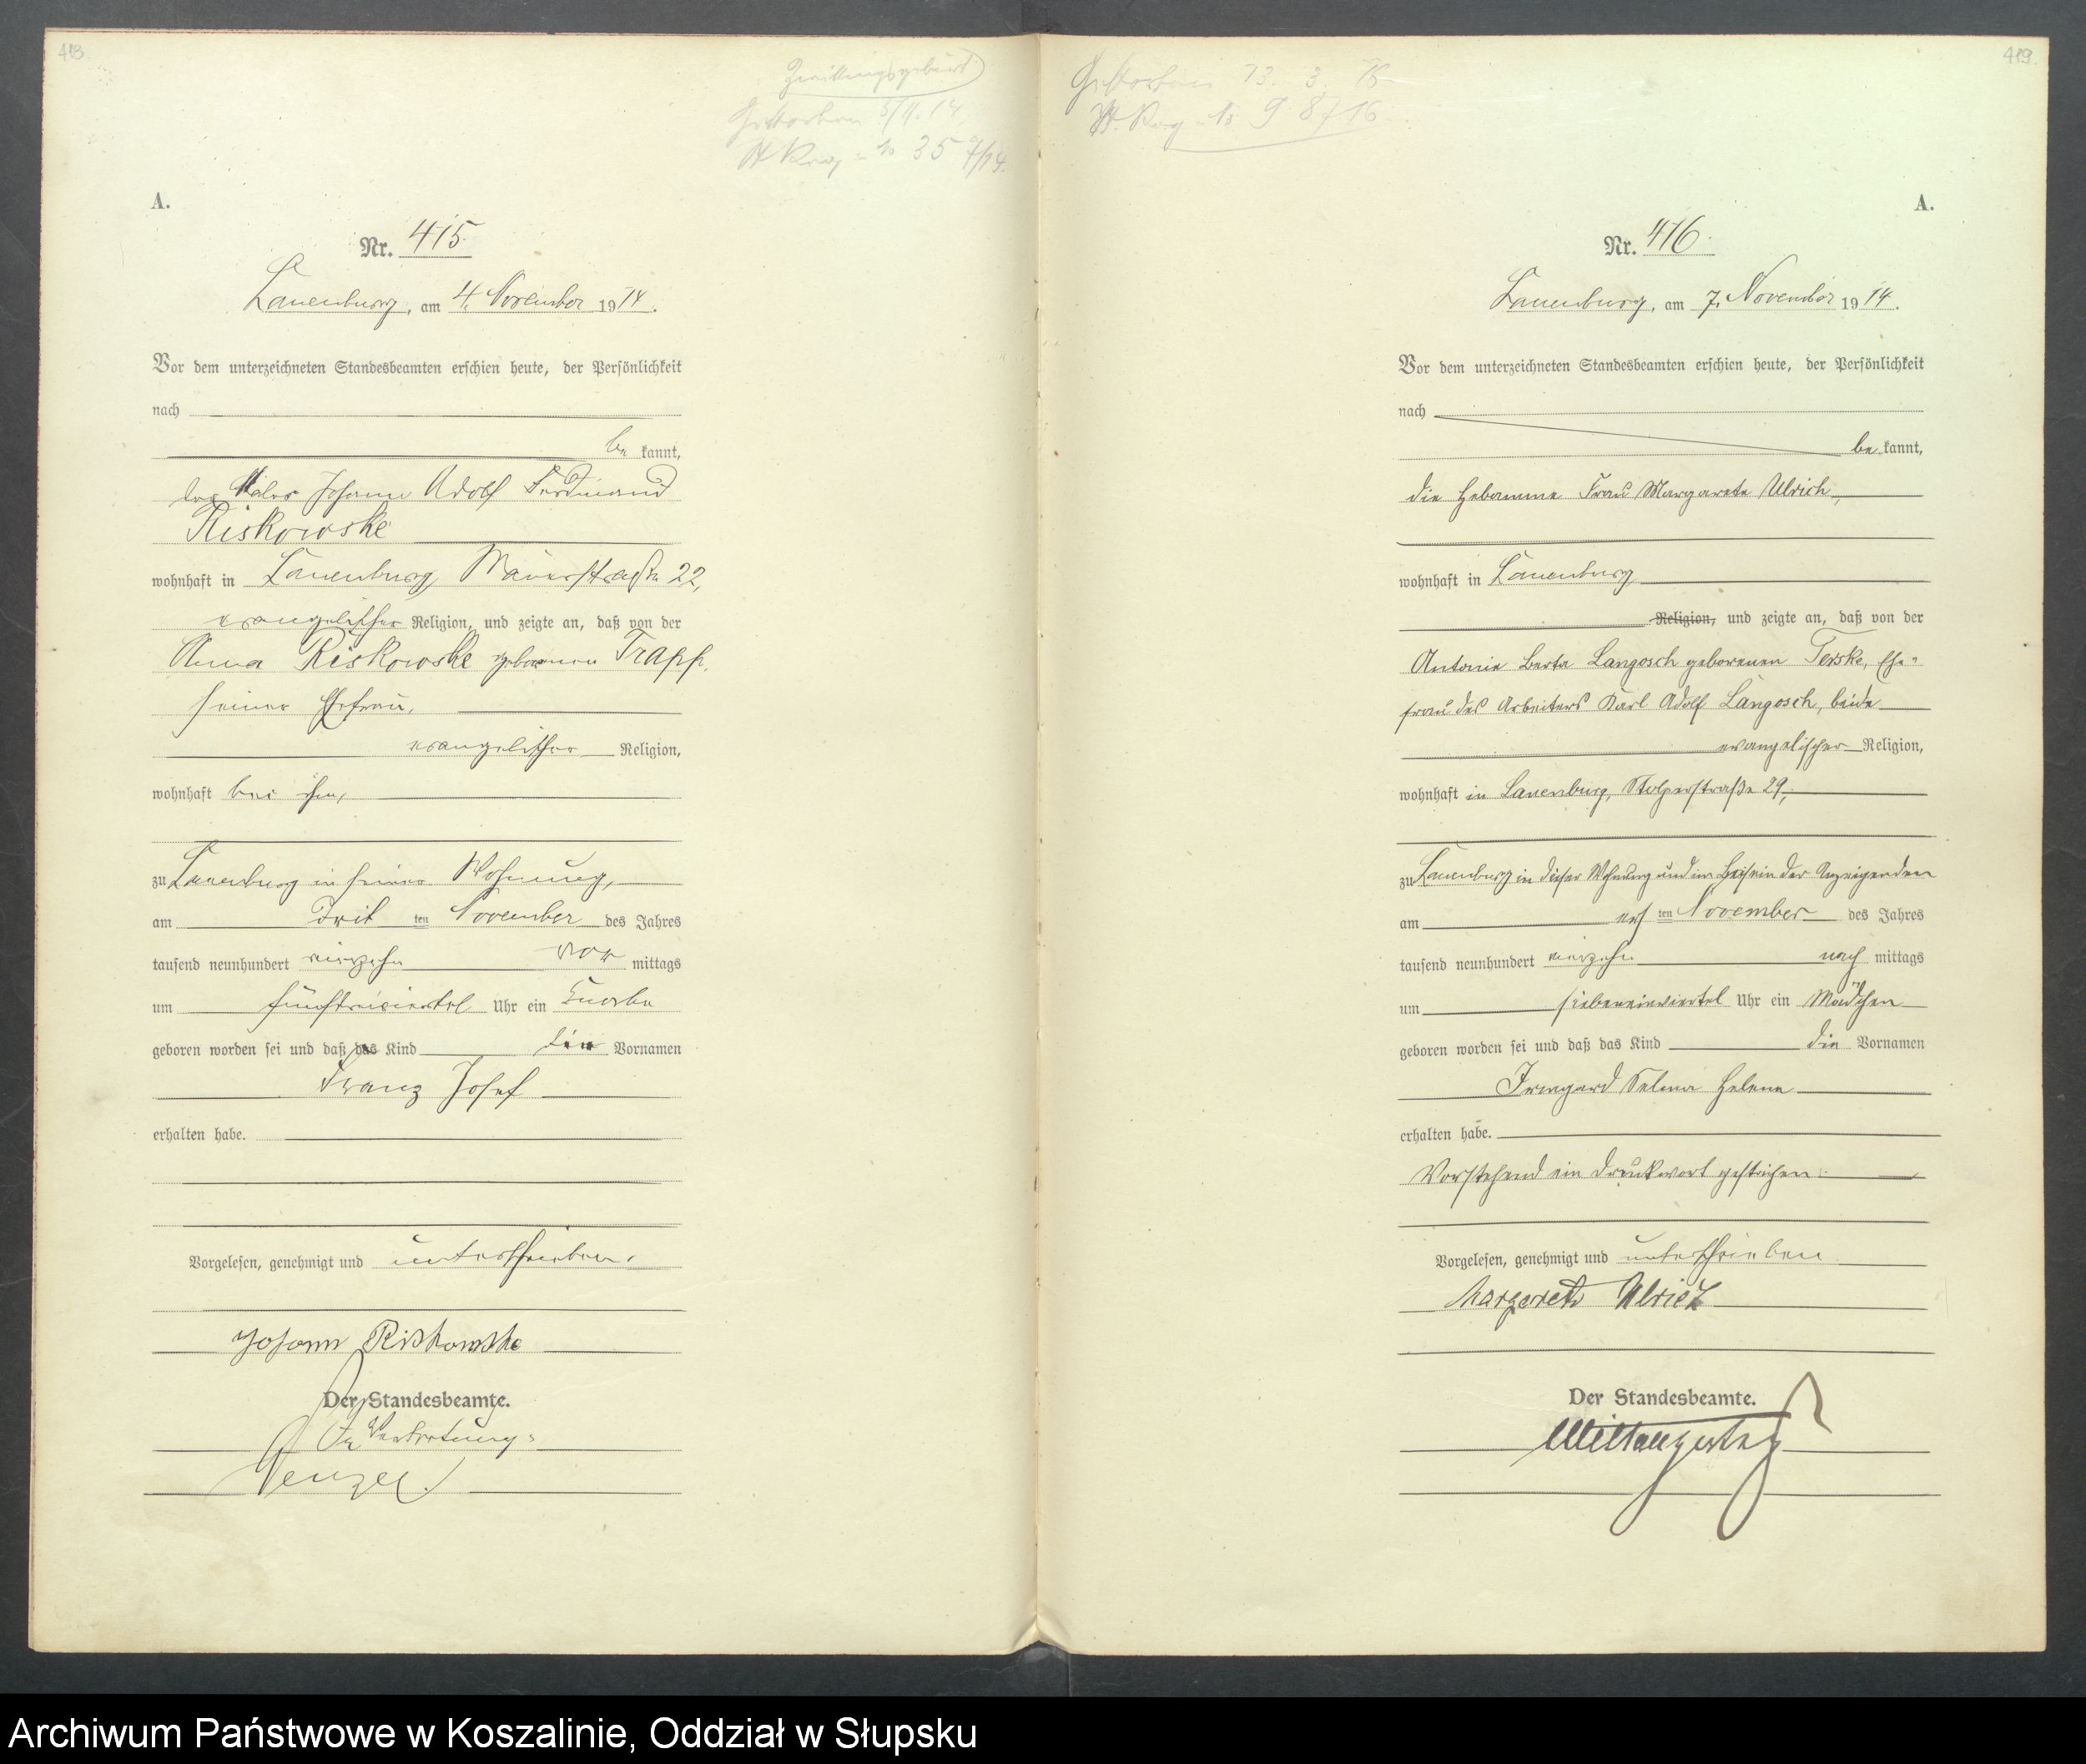 418.
Zwillingsgeburt
Gestorben 5/11.14.
St Reg. No 357/14.
A.
Nr. 415.
Lauenburg, am 4. November 1914.
Vor dem unterzeichneten Standesbeamten erschien heute, der Persönlichkeit
nach
be kannt,
der Maler Johann Adolf Ferdinand
Riskowske
wohnhaft in Lauenburg, Mauerstraße 22,
evangelischer Religion, und zeigte an, daß von der
Anna Riskowske geborenen Trapp,
seiner Ehefrau,
evangelischer Religion,
wohnhaft bei ihm,
zu Lauenburg in seiner Wohnung,
am dritten November des Jahres
tausend neunhundert vierzehn vor mittags
um fünfdreiviertel Uhr ein Knabe
geboren worden sei und daß das Kind die Vornamen
Franz Josef
erhalten habe.
Vorgelesen, genehmigt und unterschrieben.
Johann Riskowske
Der Standesbeamte.
In Vertretung:
Wenzel.
419.
Gestorben 13. 3. 16
St. Reg. No 98/16.
A.
Nr. 416.
Lauenburg, am 7. November 1914.
Vor dem unterzeichneten Standesbeamten erschien heute, der Persönlichkeit
nach
be kannt,
die Hebamme Frau Margarete Ulrich,
wohnhaft in Lauenburg
Religion, und zeigte an, daß von der
Antonie Berta Langosch geborenen Terske, Ehe-
frau des Arbeiters Karl Adolf Langosch, beide
evangelischer Religion,
wohnhaft in Lauenburg, Stolperstraße 29,
zu Lauenburg in dieser Wohnung und im Beisein der Anzeigenden
am ersten November des Jahres
tausend neunhundert vierzehn nach mittags
um siebeneinviertel Uhr ein Mädchen
geboren worden sei und daß das Kind die Vornamen
Irmgard Selma Helene
erhalten habe.
Vorstehend ein Druckwort gestrichen.
Vorgelesen, genehmigt und unterschrieben
Margarete Ulrich
Der Standesbeamte.
Archiwum Państwowe w Koszalinie, Oddział w Słupsku